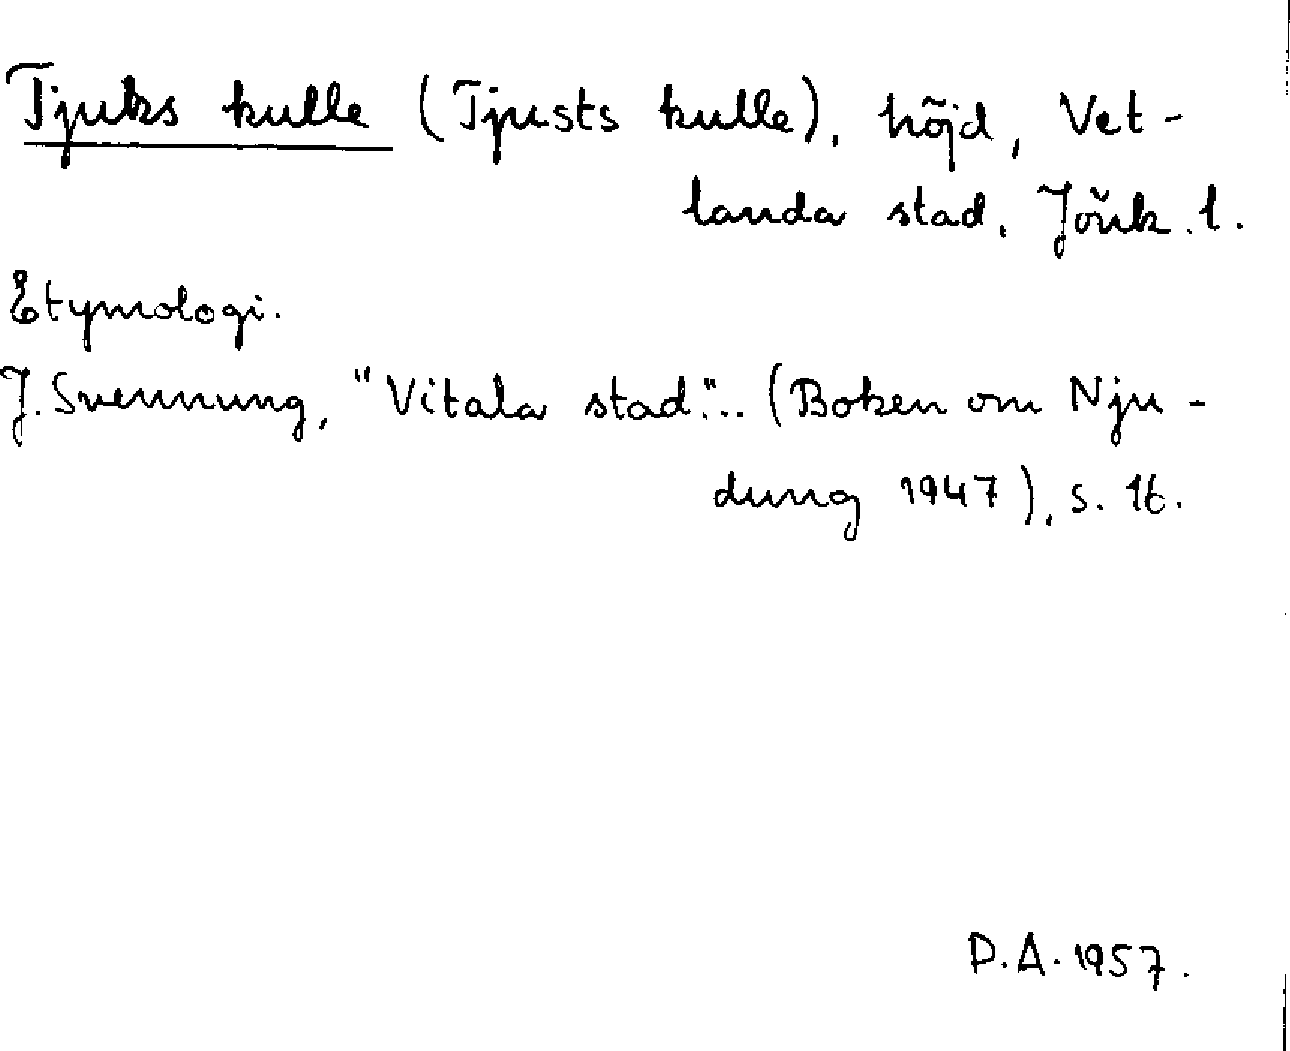 Tjuks kulle (Tjusts kulle), höjd, Vet-
landa stad, Jönk. l.
Etymologi.
J. Svennung, "Vitala stad"... (Boken om Nju-
dung 1947), s. 16.
D.A. 1957.